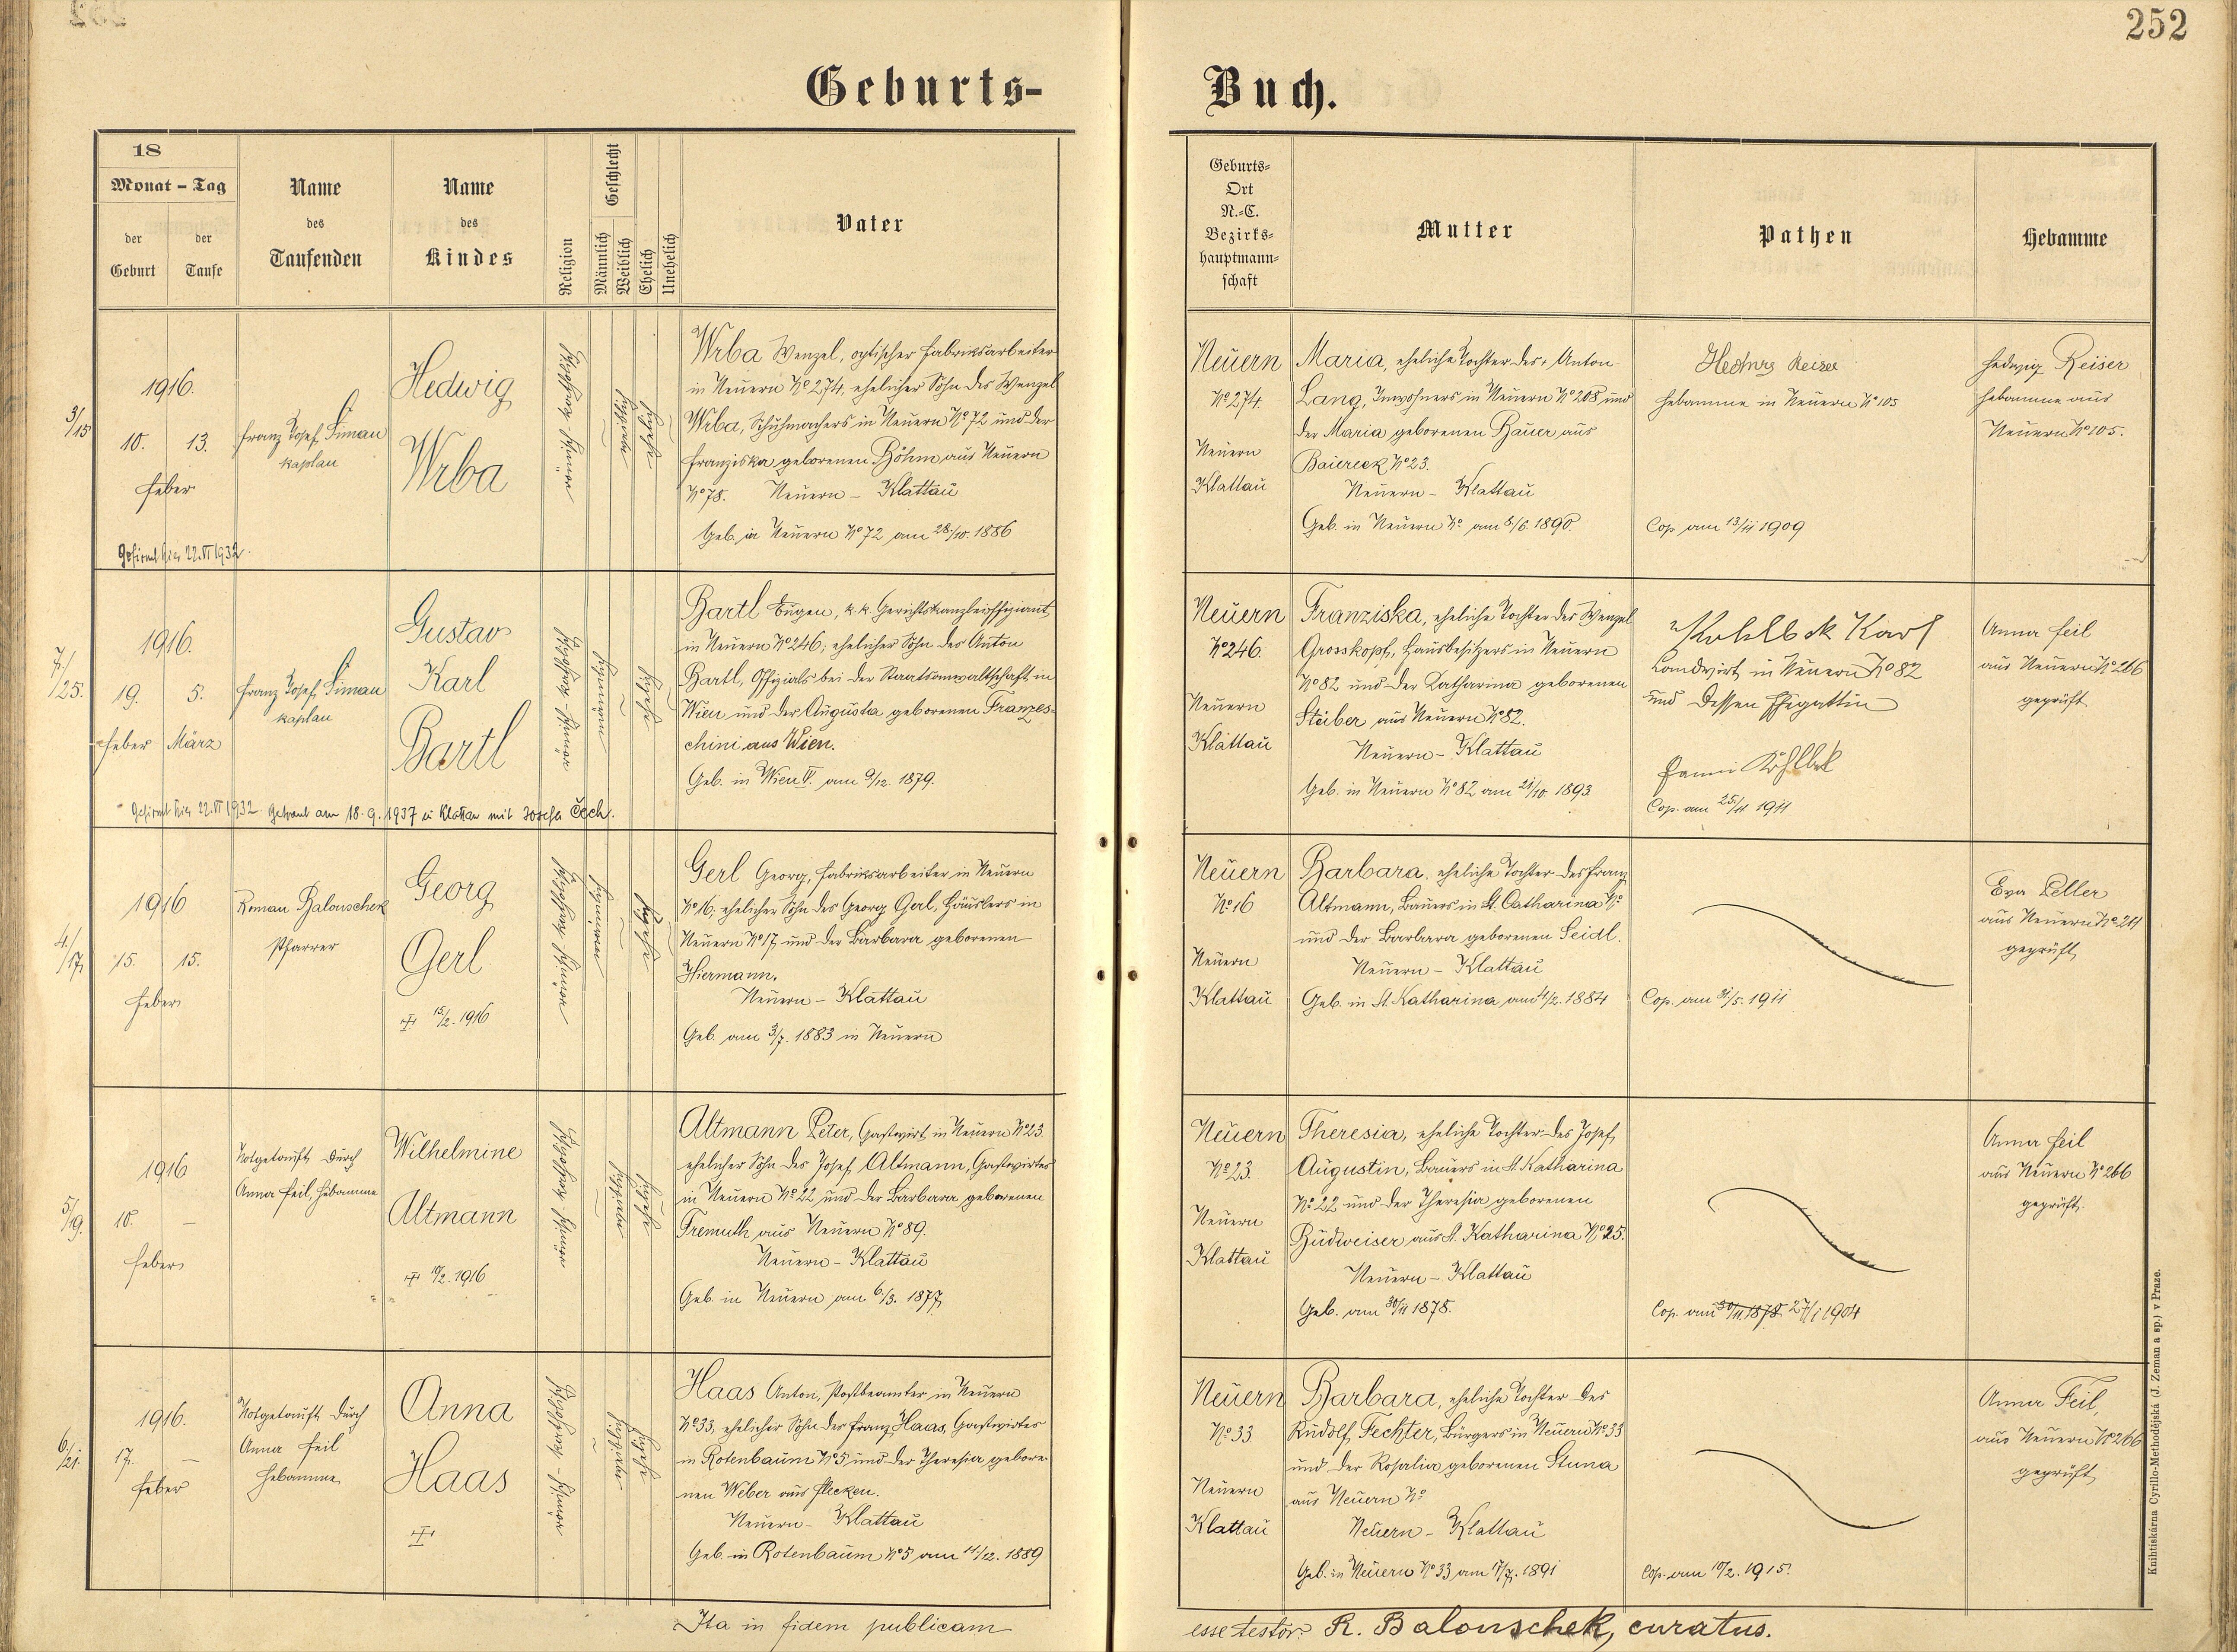 252
Geburts-
Buch.
18
Monat - Tag
der Geburt
der Taufe
Name
des
Taufenden
Name
des
Kindes
Religion
Geschlecht
Männlich
Weiblich
Ehelich
Unehelich
Vater
Geburts-
Ort
N.-C.
Bezirks-
hauptmann-
schaft
Mutter
Pathen
Hebamme
3/15
1916.
10. 13.
Feber
Franz Josef Siman
Kaplan
Hedwig
Wrba
Wrba Wenzel, optischer Fabriksarbeiter
in Neuern No 274, ehelicher Sohn des Wenzel
Wrba, Schuhmachers in Neuern No 72 und der
Franziska geborenen Böhm aus Neuern
No 78. Neuern - Klattau
Geb. in Neuern No 72 am 28./10. 1886
Gefirmt hier 22.VI 1932.
Neuern
No 274.
Neuern
Klattau
Maria, eheliche Tochter des Anton
Lang, Inwohners in Neuern No 208 und
der Maria geborenen Bauer aus
Baiereck No 23.
Neuern - Klattau
Geb. in Neuern No am 8/6. 1890
Hedwig Reiser
Hebamme in Neuern No 105
Cop. am 13/11 1909
Hedwig Reiser
Hebamme aus
Neuern No 105.
7./25.
1916.
19. 5.
Feber März
Franz Josef Siman
Kaplan
Gustav
Karl
Bartl
Bartl Eugen, k.k. Gerichtskanzleioffiziant,
in Neuern No 246; ehelicher Sohn des Anton
Bartl, Offizials bei der Staatsanwaltschaft in
Wien und der Augusta geborenen Franzes-
chini aus Wien.
Geb. in Wien V. am 9/12. 1879.
Gefirmt hier 22.VI 1932. Getraut am 18.9.1937 in Klattau mit Josefa Čech.
Neuern
No 246.
Neuern
Klattau
Franziska, eheliche Tochter des Wenzel
Grosskopf, Hausbesitzers in Neuern
No 82 und der Katharina geborenen
Steiber aus Neuern No 82.
Neuern - Klattau
Geb. in Neuern No 82 am 21/10. 1893.
Karl
Landwirt in Neuern No 82
und dessen Ehegattin
Cop. am 25/11 1911
Anna Feil
aus Neuern No 266
geprüft
4./17.
1916
15. 15.
Feber
Roman Balouschek
Pfarrer
Georg
Gerl
15/2. 1916
Gerl Georg, Fabriksarbeiter in Neuern
No 16, ehelicher Sohn des Georg Gerl, Häuslers in
Neuern No 17 und der Barbara geborenen
Hiermann.
Neuern - Klattau
Geb. am 3/7. 1883 in Neuern
Neuern
No 16
Neuern
Klattau
Barbara, eheliche Tochter des Franz
Altmann, Bauers in St. Catharina No
und der Barbara geborenen Seidl.
Neuern - Klattau
Geb. in St. Katharina am 4/2. 1884
Cop. am 31/5. 1911
Eva Peller
aus Neuern No 211
geprüft
5/19.
1916
18. –
Feber
Notgetauft durch
Anna Feil, Hebamme
Wilhelmine
Altmann
/2. 1916
Altmann Peter, Gastwirt in Neuern No 23.
ehelicher Sohn des Josef Altmann, Gastwirtes
in Neuern No 22 und der Barbara geborenen
Tremuth aus Neuern No 89.
Neuern - Klattau
Geb. in Neuern am 6./3. 1877
Neuern
No 23.
Neuern
Klattau
Theresia, eheliche Tochter des Josef
Augustin, Bauers in St. Katharina
No 22 und der Theresia geborenen
Budweiser aus St. Katharina No 25.
Neuern - Klattau
Geb. am 30/11 1878.
Cop. am 30/11. 1878 27/1 1904
Anna Feil
aus Neuern No 266
geprüft.
6./21.
1916.
17. –
Feber
Notgetauft durch
Anna Feil
Hebamme
Anna
Haas
Haas Anton, Postbeamter in Neuern
No 33, ehelicher Sohn des Franz Haas, Gastwirtes
in Rotenbaum No 5 und der Theresia gebore-
nen Weber aus Flecken.
Neuern - Klattau
Geb. in Rotenbaum No 5 am 11/12. 1889
Neuern
No 33
Neuern
Klattau
Barbara, eheliche Tochter des
Rudolf Fechter, Bürgers in Neuern No 33
und der Rosalia geborenen Stuna
aus Neuern No
Neuern - Klattau
Geb. in Neuern No 33 am 17/7. 1891
Cop. am 10/2. 1915.
Anna Feil,
aus Neuern No 266
geprüft
Ita in fidem publicam
esse testor: R. Balouschek, curatus.
Knihtiskárna Cyrillo-Methodějská (J. Zeman a sp.) v Praze.